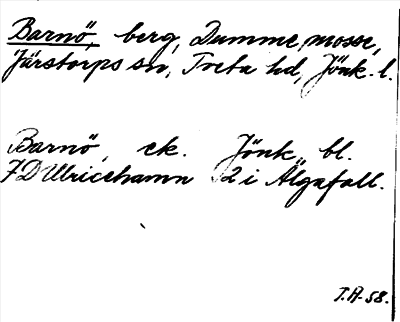 Barnö, berg, Dumme mosse,
Järstorps sn, Tveta hd, Jönk. l.
Barnö, ek. Jönk, bl.
7D Ulricehamn 2 i Älgafall.
T.A-58.